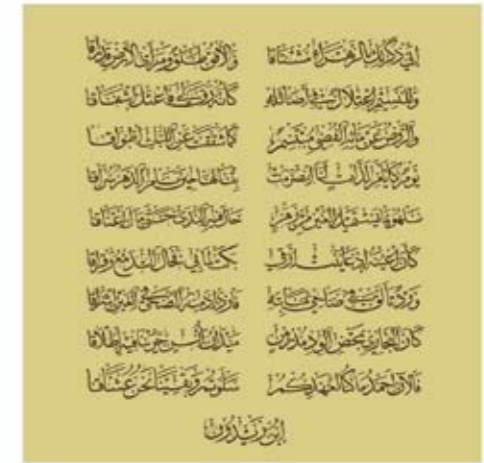 إني ذكرتك بالزهراء مشتاقا والأفق طلق ومرأى الأرض قد راقا
وللنسيم اعتلال في أصائله كأنه رق لي فاعتل إشفاقا
والروض عن مائه الفضي مبتسم كما شققت عن اللبات أطواقا
يوم كأيام لذات لنا انصرمت بتنا لها حين نام الدهر سراقا
نلهو بما يستميل العين من زهر جال الندى فيه حتى مال أعناقا
كأن أعينه إذ عاينت أرقي بكت لما بي فجال الدمع رقراقا
ورد تألق في ضاحي منابته فازداد منه الضحى في العين إشراقا
كان التجاري بمحض الود مذ زمن ميدان أنس جرينا فيه إطلاقا
فالآن أحمد ما كنا لعهدكم سلوتم وبقينا نحن عشاقا
ابن زيدون